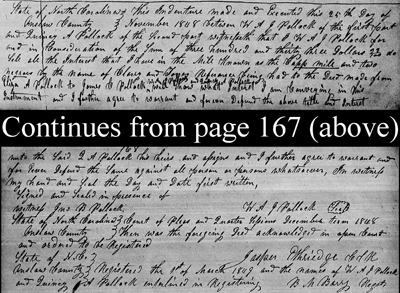 State of North Carolina} This Indenture made and Executed this 25th Day of
Onslow County } November 1848 between W A J Pollock of the first part
and Quincy A Pollock of the Second part witnesseth that I W A J Pollock for
and in Consideration of the Sum of three hundred and thirty three Dollars do
Sell all the Interest that I have in the Mill Known as the Mill and two
negroes by the name of and Reference being had to the Deed made from
A Pollock to James C Pollock will Show what Interest I am Conveying in this
Instrument and I further agree to warrant and forever Defend the above title and Interest
Continues from page 167 (above)
unto the Said Q A Pollock his heirs and assigns and I further agree to warrant and
for Ever Defend the Same against all person or persons whatsoever, In witness
My hand and Seal the Day and Date first written,
Signed and Sealed in presence of
witness Jno Pollock W A J Pollock Seal
State of North Carolina} Court of Pleas and Quarter Sessions December term 1848
Onslow County } Then was the foregoing Deed acknowledged in open Court
and ordered to be Registered
Jasper Etheredge Clk
State of N.C }
Onslow County } Registered the 9th of March 1849 and the names of W A J Pollock
and Quincy A Pollock in Registering B M Barry Regst